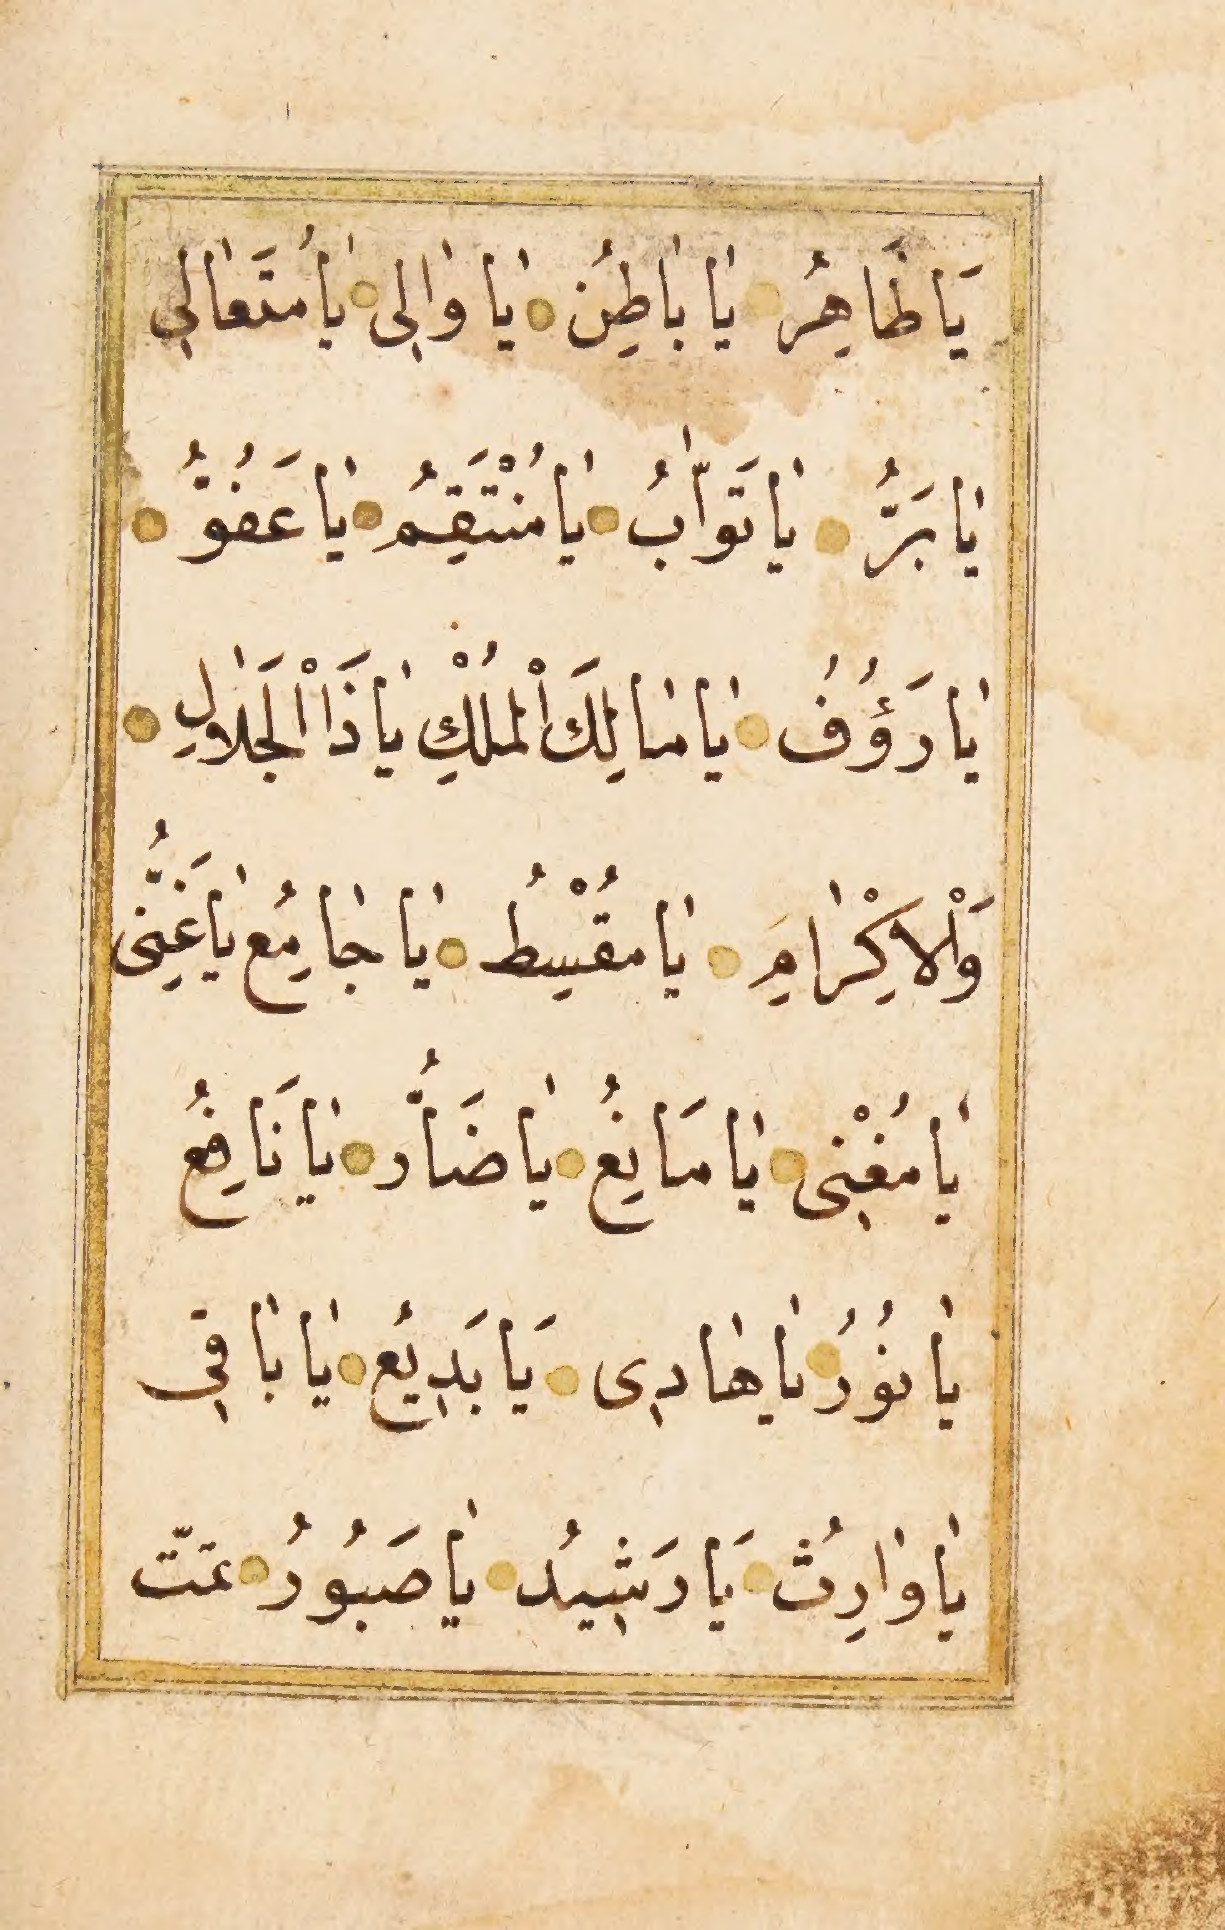 يَا ظَاهِرُ يَا بَاطِنُ يَا وَالِى يَا مُتَعَالِى
يَا بَرُّ يَا تَوَّابُ يَا مُنْتَقِمُ يَا عَفُوُّ
يَا رَؤُفُ يَا مَالِكَ الْمُلْكِ يَا ذَا الْجَلَالِ
وَالْاِكْرَامِ يَا مُقْسِطُ يَا جَامِعُ يَا غَنِىُّ
يَا مُغْنِى يَا مَانِعُ يَا ضَآرُّ يَا نَافِعُ
يَا نُورُ يَا هَادِى يَا بَدِيعُ يَا بَاقِى
يَا وَارِثُ يَا رَشِيدُ يَا صَبُورُ تمّت